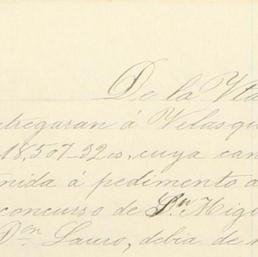 De la Vta
tregaran á Velasqu
18,507-22cs, cuya can
nida á pedimento a
concurso de Sn Migu
Dn Lauro, debia de